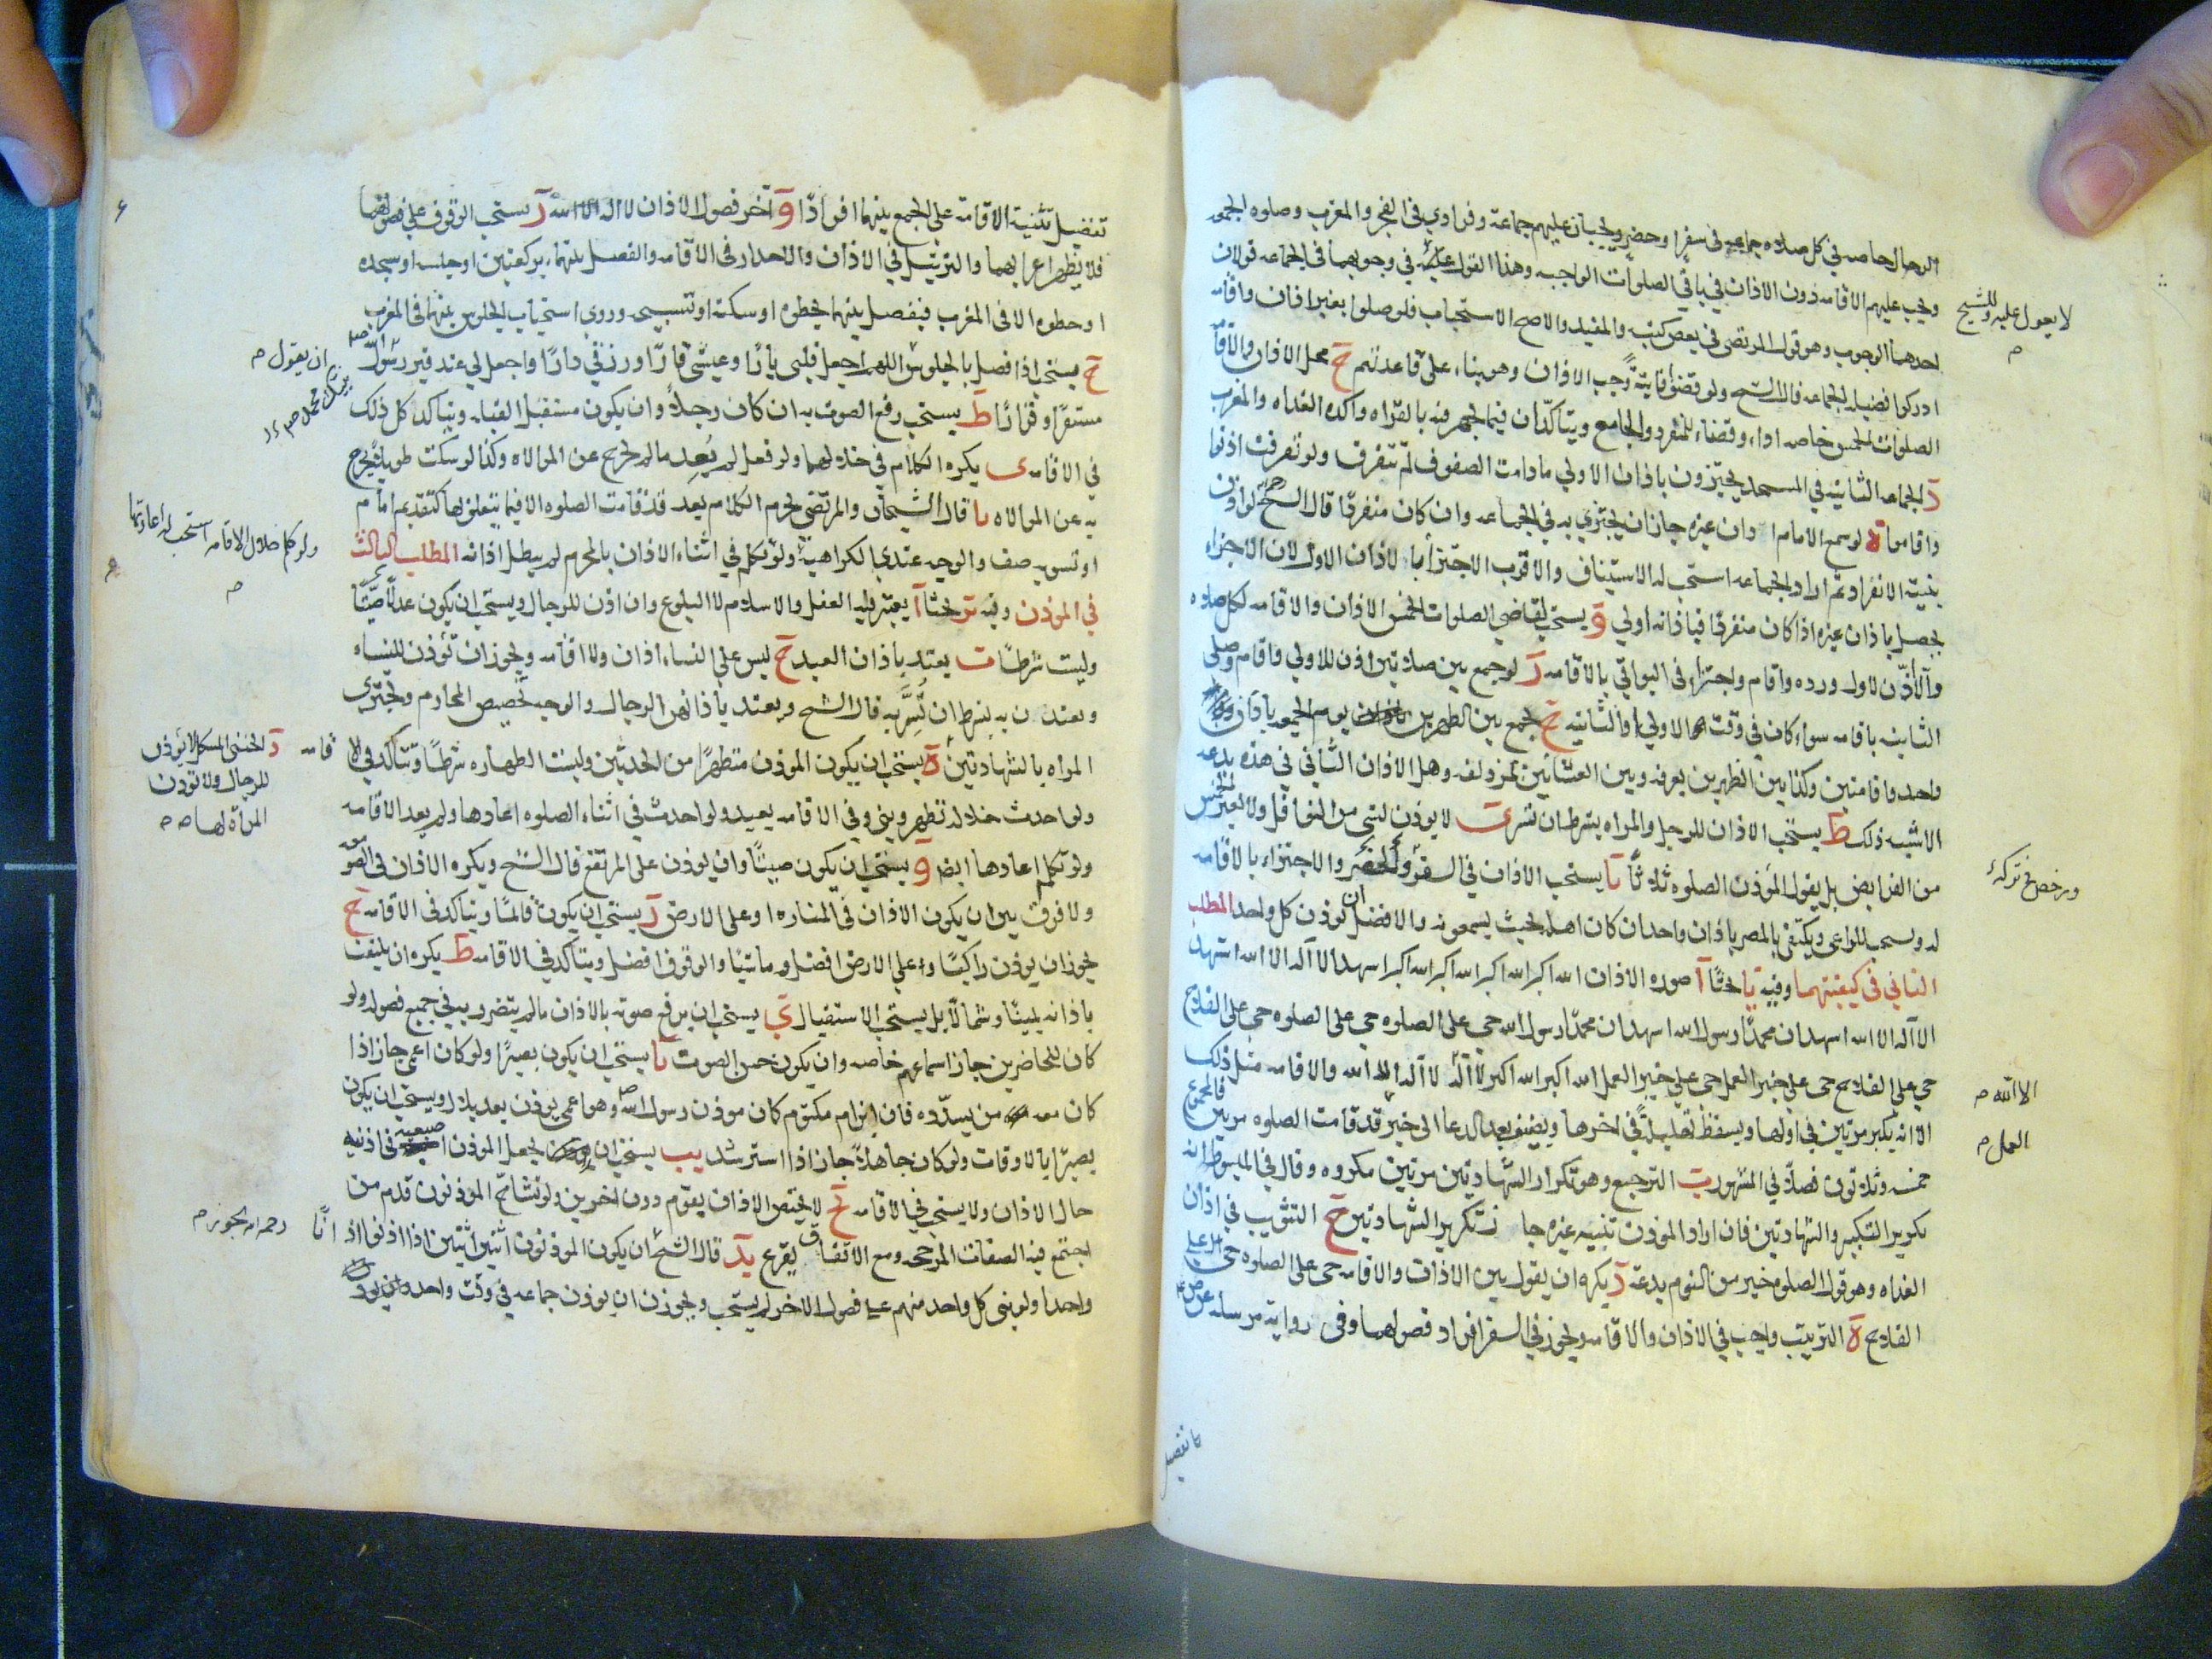 الرجال خاصه في كل صلاه جماعه في سفر او حضر ويجبان عليهم جماعة وفرادي في الفجر والمغرب وصلوه الجمعه
ويجب عليهم الاقامه دون الاذان في باقي الصلوات الواجبه وهذا القول في وجوبهما في الجماعه قولان
لا يعول عليه وللشيخ م
احدهما الوجوب وهو قول المرتضى في بعض كتبه والمفيد والاصح الاستحباب فلو صلوا بغير اذان واقامه
ادركوا فضيله الجماعه قال الشيخ ولو قضوا وجب الاذان وهو بناء على قاعدتهم ج محل الاذان والاقامه
الصلوات الخمس خاصه اداء وقضاء للمنفرد والجامع ويتاكدان فيما يجهر فيه بالقراه واكده الغداه والمغرب
د الجماعه الثانيه في المسجد يجتزون باذان الاولي مادامت الصفوف لم تتفرق ولو تفرقت اذنوا
واقاموا ه لو سمع الامام اذان غيره جاز ان يجتزي به في الجماعه وان كان منفردا قال الشيخ لو اذن
بنيه الانفراد ثم اراد الجماعه استحب له الاستيناف والاقرب الاجتزا بالاذان الاول لان الاجتزاء
يحصل باذان غيره اذا كان منفردا فباذانه اولي و يستحب لقاضي الصلوات الخمس الاذان والاقامه لكل صلوه
والا اذن لاول ورده واقام واجتزاء في البواقي بالاقامه ز لو جمع بين صلاتين اذن للاولي واقام وصلى
الثانيه باقامه سواء كان في وقت الاولي او الثانيه ح يجمع بين الظهرين يوم الجمعه باذان
واحد واقامتين وكذا بين الظهرين بعرفه وبين العشائين بمزدلفه وهل الاذان الثاني في هذه بدعه
الاشبه ذلك ط يستحب الاذان للرجل والمراه بشرط ان تسر ى لا يوذن لشي من النوافل ولا لغير الخمس
من الفرايض بل يقول المؤذن الصلوه ثلاثا يا يستحب الاذان في السفر والحضر والاجتزاء بالاقامه
ورخص في تركه
له ويستحب للراعي ويكتفي بالمصر باذان واحد ان كان اهله بحيث يسمعونه والافضل ان يوذن كل واحد المطلب
الثاني في كيفيتهما وفيه يا بحثا ا صوره الاذان الله اكبر الله اكبر الله اكبر الله اكبر اشهد الا اله الا الله اشهد
الا اله الا الله اشهد ان محمدا رسول الله اشهد ان محمدا رسول الله حي على الصلوه حي على الصلوه حي على الفلاح
حي على الفلاح حي على خير العمل حي على خير العمل الله اكبر الله اكبر لا اله لا اله الا الله والاقامه مثل ذلك
الا الله م
الا انه يكبر مرتين في اولها ويسقط تهليله في اخرها ويضيف بعد الدعا الى خير قد قامت الصلوه مرتين فالمجموع
العمل م
خمسه وثلاثون فصلا في المشهور ب الترجيع وهو تكرار الشهادتين مرتين مكروه وقال في المبسوط انه
تكرير التكبير والشهادتين فان اراد المؤذن تنبيه غيره جاز تكرير الشهادتين ج التثويب في اذان
الغداه وهو قول الصلوه خير من النوم بدعة د يكره ان يقول بين الاذان والاقامه حي على الصلوه حي على
الفلاح ه الترتيب واجب في الاذان والاقامه ويجوز في السفر افراد فصولهما وفي روايه مرسله عن ص ع
تفضيل تثنية الاقامة على الجمع بينهما افرادا و اخر فصول الاذان لا اله الا الله ز يستحب الوقوف على فصولهما
فلا يظهر اعرابهما والترتيل في الاذان والاحدار في الاقامه والفصل بينهما بركعتين او جلسه او سجده
او خطوه الا في المغرب فيفصل بينهما بخطوه او سكته او تسبيحه وروي استحباب الجلوس بينهما في المغرب
ح يستحب اذا فصل بالجلوس اللهم اجعل قلبي بارا وعيشي قارا ورزقي دارا واجعل لي عند قبر رسول الله
ان يقول م
مستقرا وقرارا ط يستحب رفع الصوت به ان كان رجلا وان يكون مستقبل القبله ويتاكد كل ذلك
في الاقامه ى يكره الكلام في خلالهما ولو فعل لم يعد مالم يخرج عن الموالاه وكذا لو سكت طويلا يخرج
به عن الموالاه يا قال الشيخان والمرتضى يحرم الكلام بعد قد قامت الصلوه الا فيما يتعلق بها كتقديم امام
ولو تكلم خلال الاقامه استحب له اعادتها م
او تسويه صف والوجه عندي الكراهيه ولو تكلم في اثناء الاذان بالمحرم لم يبطل اذانه المطلب الثالث
في المؤذن وفيه بحثا ا يعتبر فيه العقل والاسلام لا البلوغ وان اذن للرجال ويستحب ان يكون عدلا
وليست شرطا ب يعتد باذان العبد ج ليس على النساء اذان ولا اقامه ويجوز ان توذن للنساء
ويعتددن به بشرط ان تسر به قال الشيخ ويعتد باذانهن الرجال والوجه تخصيص المحارم وتجتزي
المراه بالشهادتين ه يستحب ان يكون المؤذن متطهرا من الحدثين وليست الطهاره شرطا وتتاكد في الاقامه
د الخنثى المشكل لا يؤذن
للرجال ولا تؤذن
المرأة لها صه م
ولو احدث خلاله تطهر وبنى وفي الاقامه يعيد ولو احدث في اثناء الصلوه اعادها ولم يعد الاقامه
ولو تكلم اعادها ايضا و يستحب ان يكون صيتا وان يوذن على المرتفع قال الشيخ ويكره الاذان في الصومعه
ولا فرق بين ان يكون الاذان في المناره او على الارض ز يستحب ان يكون قائما ويتاكد في الاقامه ح
يجوز ان يوذن راكبا وعلى الارض افضل وماشيا والوقوف افضل ويتاكد في الاقامه ط يكره ان يلتفت
باذانه يمينا وشمالا بل يستحب الاستقبال ى يستحب ان يرفع صوته بالاذان مالم يتضرر به في جميع فصوله ولو
كان للحاضرين جاز اسماعهم خاصه وان يكون حسن الصوت يا يستحب ان يكون بصيرا ولو كان اعمى جاز اذا
كان معه من يسدده فان ابن ام مكتوم كان موذن رسول الله ص وهو اعمى يوذن بعد بلال ويستحب ان يكون
بصيرا بالاوقات ولو كان جاهلا جاز اذا استرشد يب يستحب ان يجعل المؤذن اصبعيه في اذنيه
حال الاذان ولا يستحب في الاقامه يج لا يختص الاذان بقوم دون اخرين ولو تشاح المؤذنون قدم من
اجتمع فيه الصفات المرجحه ومع الاتفاق يقرع يد قال الشيخ ان يكون المؤذنون اثنين اثنين اذا اذنوا اذانا
رحمه الله يجوز م
واحدا ولو بنى كل واحد منهم على فصول الاخر لم يستحب ويجوز ان يوذن جماعه في وقت واحد